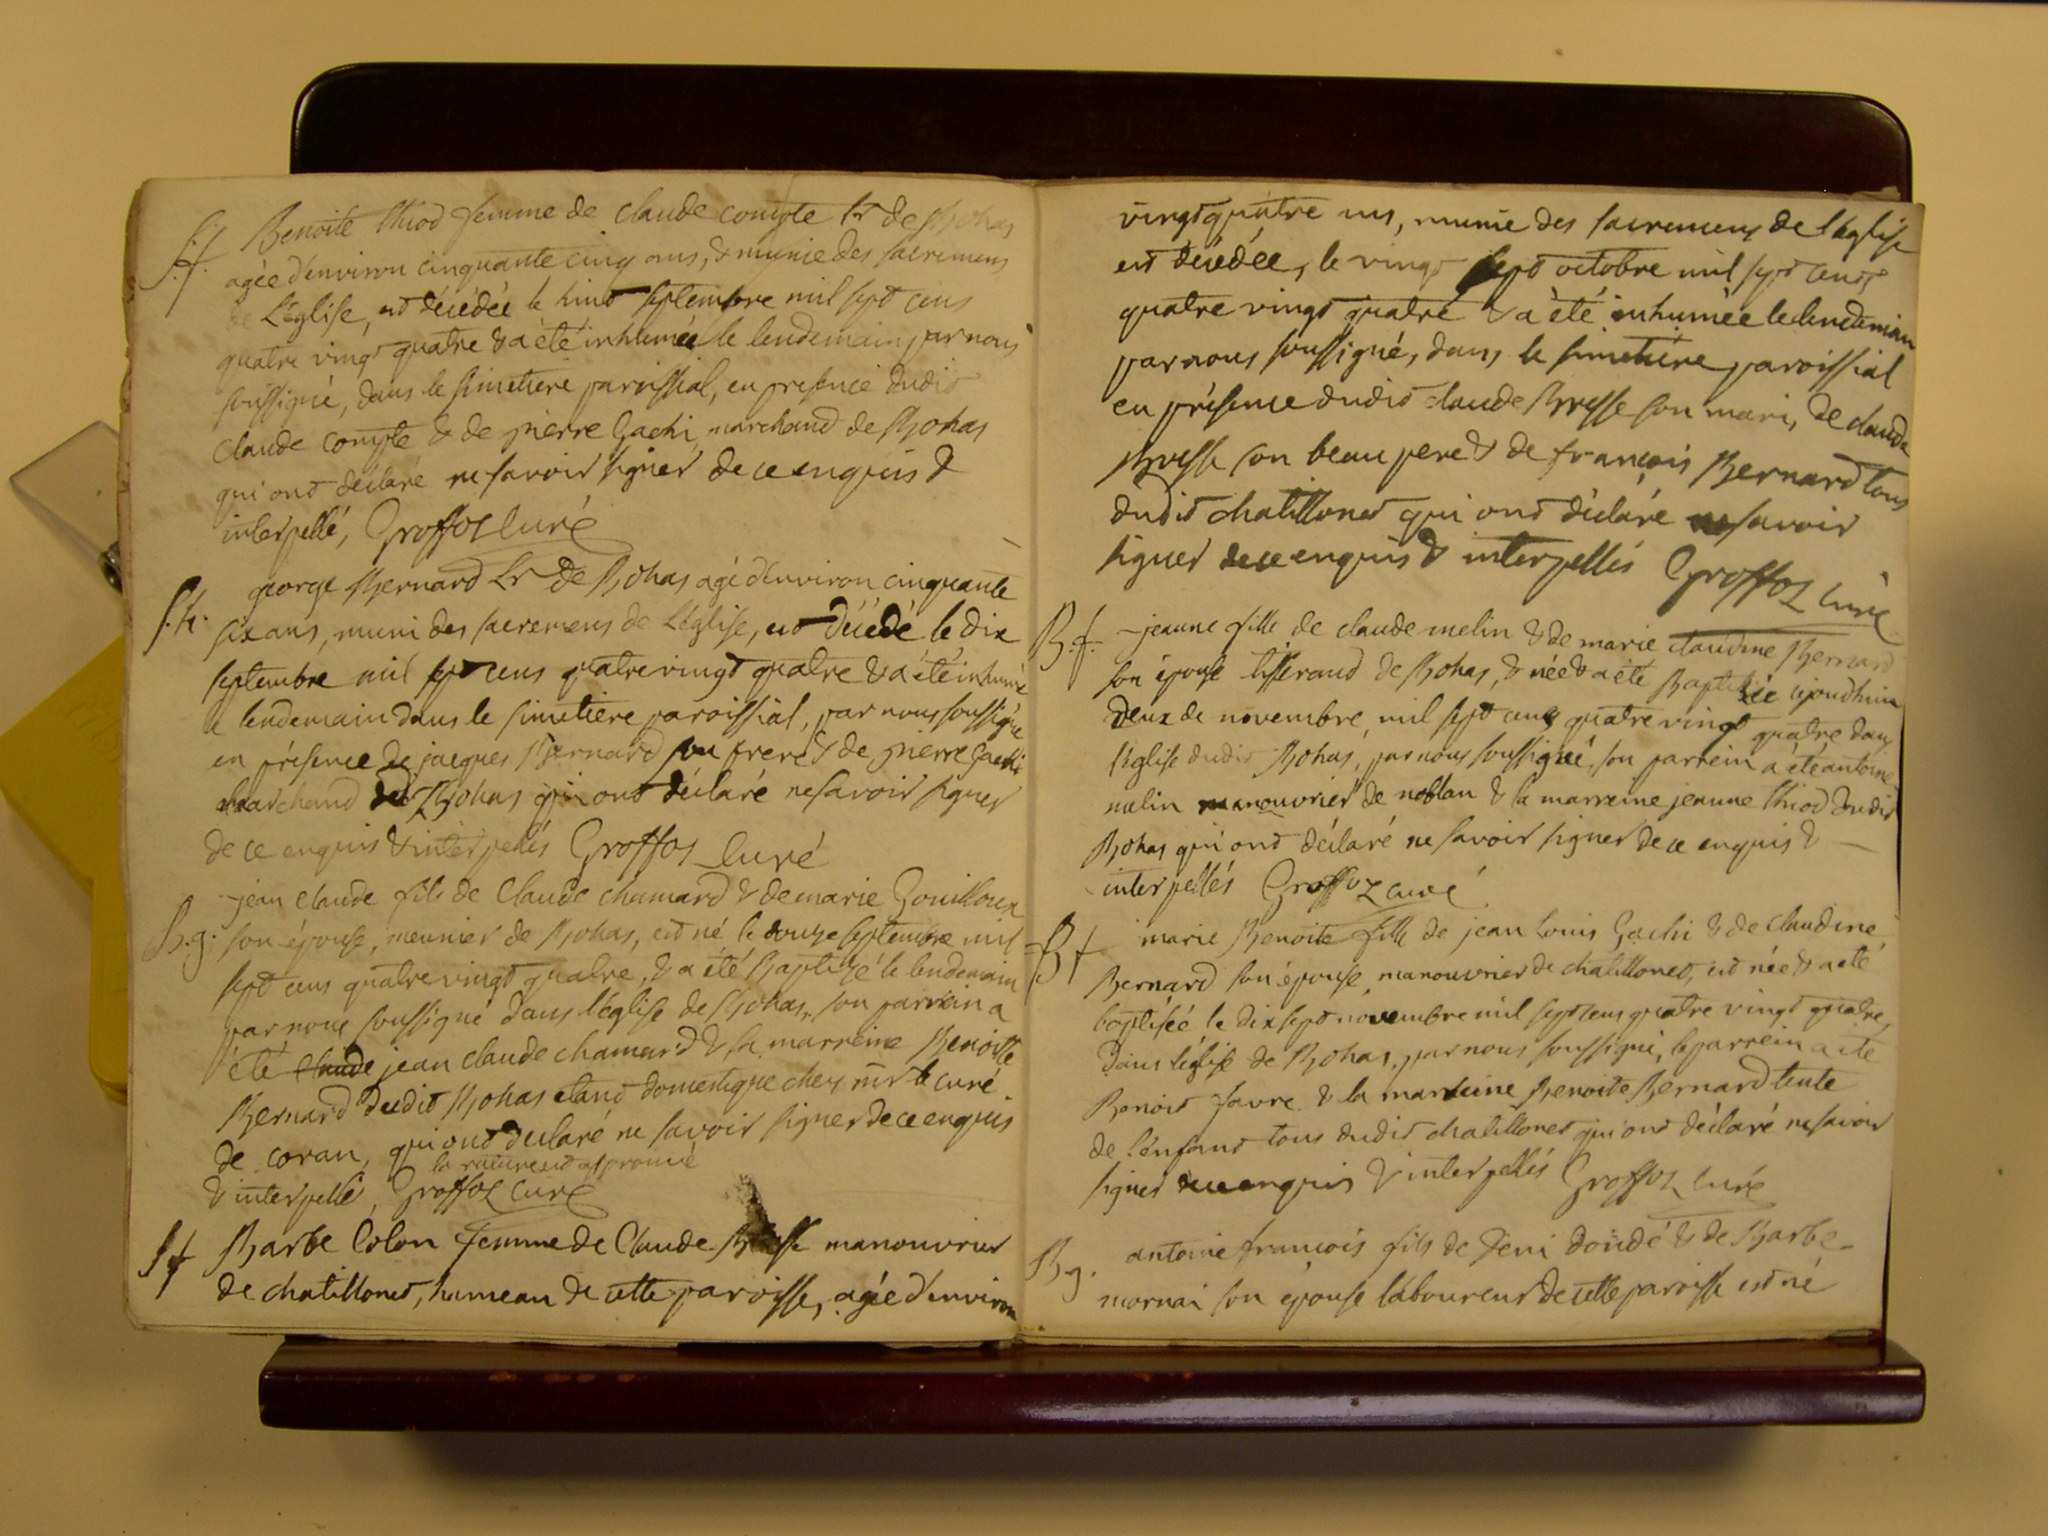 S.f. Benoite thiod femme de claude compte Lr de Rohas
agée d'environ cinquante cinq ans, & munie des sacremens
de L'église, est décédée le huit septembre mil sept cens
quatre vingt quatre & a été inhumée le lendemain par nous
soussigné, dans le simetiere paroissial, en presence dudit
claude compte & de pierre Gachi marchand de Rohas
qui ont déclaré ne savoir signer de ce enquis &
interpellé, Groffoz curé
S.h. george Bernard Lr de Rohas agé d'environ cinquante
six ans, muni des sacremens de L'église, est décédé le dix
septembre mil sept cens quatre vingt quatre & a été inhumé
le lendemain dans le simetiere paroissial, par nous soussigné
en présence de jacques Bernard son frere & de pierre Gachi
marchand de Rohas qui ont déclaré ne savoir signer
de ce enquis & interpellés Groffoz curé
B.g. jean claude fils de Claude chamard & de marie Gouilloux
son épouse, meunier de Rohas, est né le douze septembre mil
sept cens quatre vingt quatre, & a été Baptizé le lendemain
par nous soussigné dans l'église de Rohas, son parrein a
été claude jean claude chamard & la marreine Benoitte
Bernard dudit Rohas etant domestique chez mr le curé
de coran, qui ont déclaré ne savoir signer de ce enquis
la rature est approuvé
& interpellé, Groffoz curé
S f Barbe Colon femme de Claude Bresse manouvrier
de chatillonet, hameau de cette paroisse, agée d'environ
vingt quatre ans, munie des sacremens de l'église
est décédée, le vingt sept octobre mil sept cents
quatre vingt quatre & a été inhumée le lendemain
par nous soussigné, dans le simetiére paroissial
en présence dudit claude Bresse son mari, de claude
Bresse son beau pere & de françois Bernard tous
dudit chatillonet qui ont déclaré ne savoir
signer de ce enquis & interpellés Groffoz curé
B.f. jeanne fille de claude melin & de marie claudine Bernard
son épouse tisserand de Rohas, & née & a été Baptisée ajourdhui
deux de novembre mil sept cens quatre vingt quatre dans
l'église dudit Rohas, par nous soussigné, son parrein a été antoine
melin manouvrier de noblan & la marreine jeanne thiod dudit
Rohas qui ont déclaré ne savoir signer de ce enquis &
interpellés Groffoz curé
B f marie Benoite fille de jean Louis Gachi & de claudine
Bernard son épouse, manouvrier de chatillonet, est née & a été
baptiséé le dix sept novembre mil sept cens quatre vingt quatre,
dans l'église de Rohas, par nous soussigné, le parrein a été
Benoit favre & la marreine Benoite Bernard tente
de l'enfant tous dudit chatillonet qui ont déclaré ne savoir
signer de ce enquis & interpellés Groffoz curé
B g. antoine francois fils de Deni doudé & de Barbe
mornai son épouse laboureur de cette paroisse est né